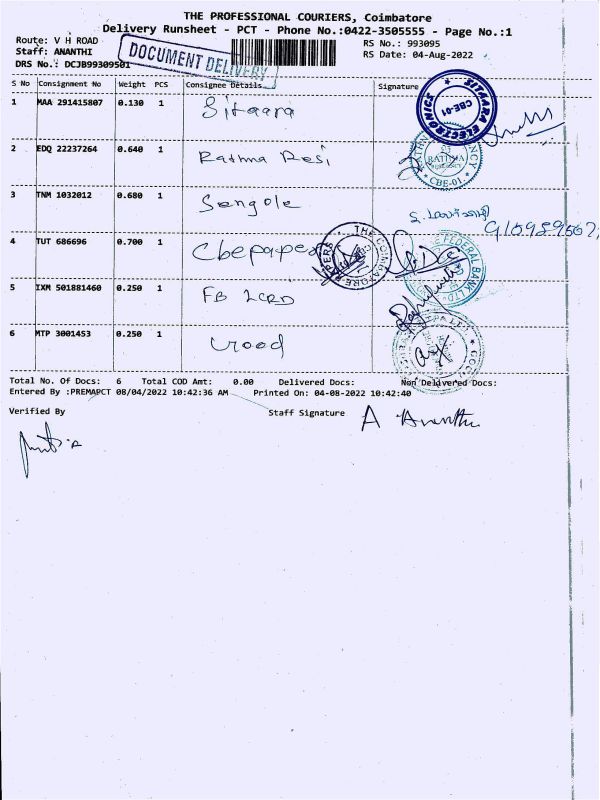 THE PROFESSIONAL COURIERS, Coimbatore
Delivery Runsheet - PCT - Phone No.:0422-3505555 - Page No.:1
Route: V H ROAD
RS No.: 993095
Staff: ANANTHI
RS Date: 04-Aug-2022
DRS No.: DCJB99309501
DOCUMENT DELIVERY
S No Consignment No Weight PCS Consignee Details Signature
1 MAA 291415807 0.130 1 Sitaara
SITAARA ELECTRONICS CBE-01
2 EDQ 22237264 0.640 1 Rathna Resi
RATHNA CBE-01
3 TNM 1032012 0.680 1 Sengole
4 TUT 686696 0.700 1 Cbepapers
THE COIMBATORE PAPERS
FEDERAL BANK LTD
5 IXM 501881460 0.250 1 FB LCRD
6 MTP 3001453 0.250 1 Urood
Total No. Of Docs: 6 Total COD Amt: 0.00 Delivered Docs: Non Delivered Docs:
Entered By :PREMAPCT 08/04/2022 10:42:36 AM Printed On: 04-08-2022 10:42:40
Verified By Staff Signature A Ananthi